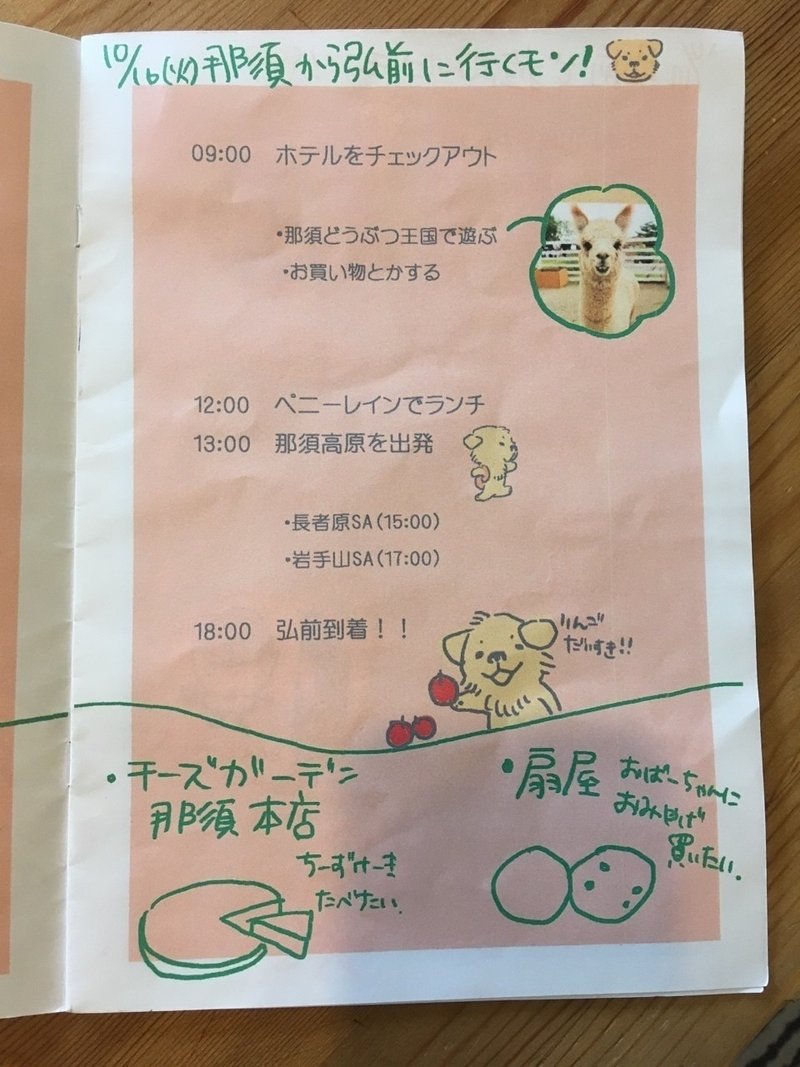 10/16(火)那須から弘前に行くモン!
09:00 ホテルをチェックアウト
・那須どうぶつ王国で遊ぶ
・お買い物とかする
12:00 ペニーレインでランチ
13:00 那須高原を出発
・長者原SA(15:00)
・岩手山SA(17:00)
18:00 弘前到着!!
りんご
だいすき!!
・チーズガーデン
那須本店
ちーずけーき
たべたい.
・扇屋
おばーちゃんに
おみやげ
買いたい.